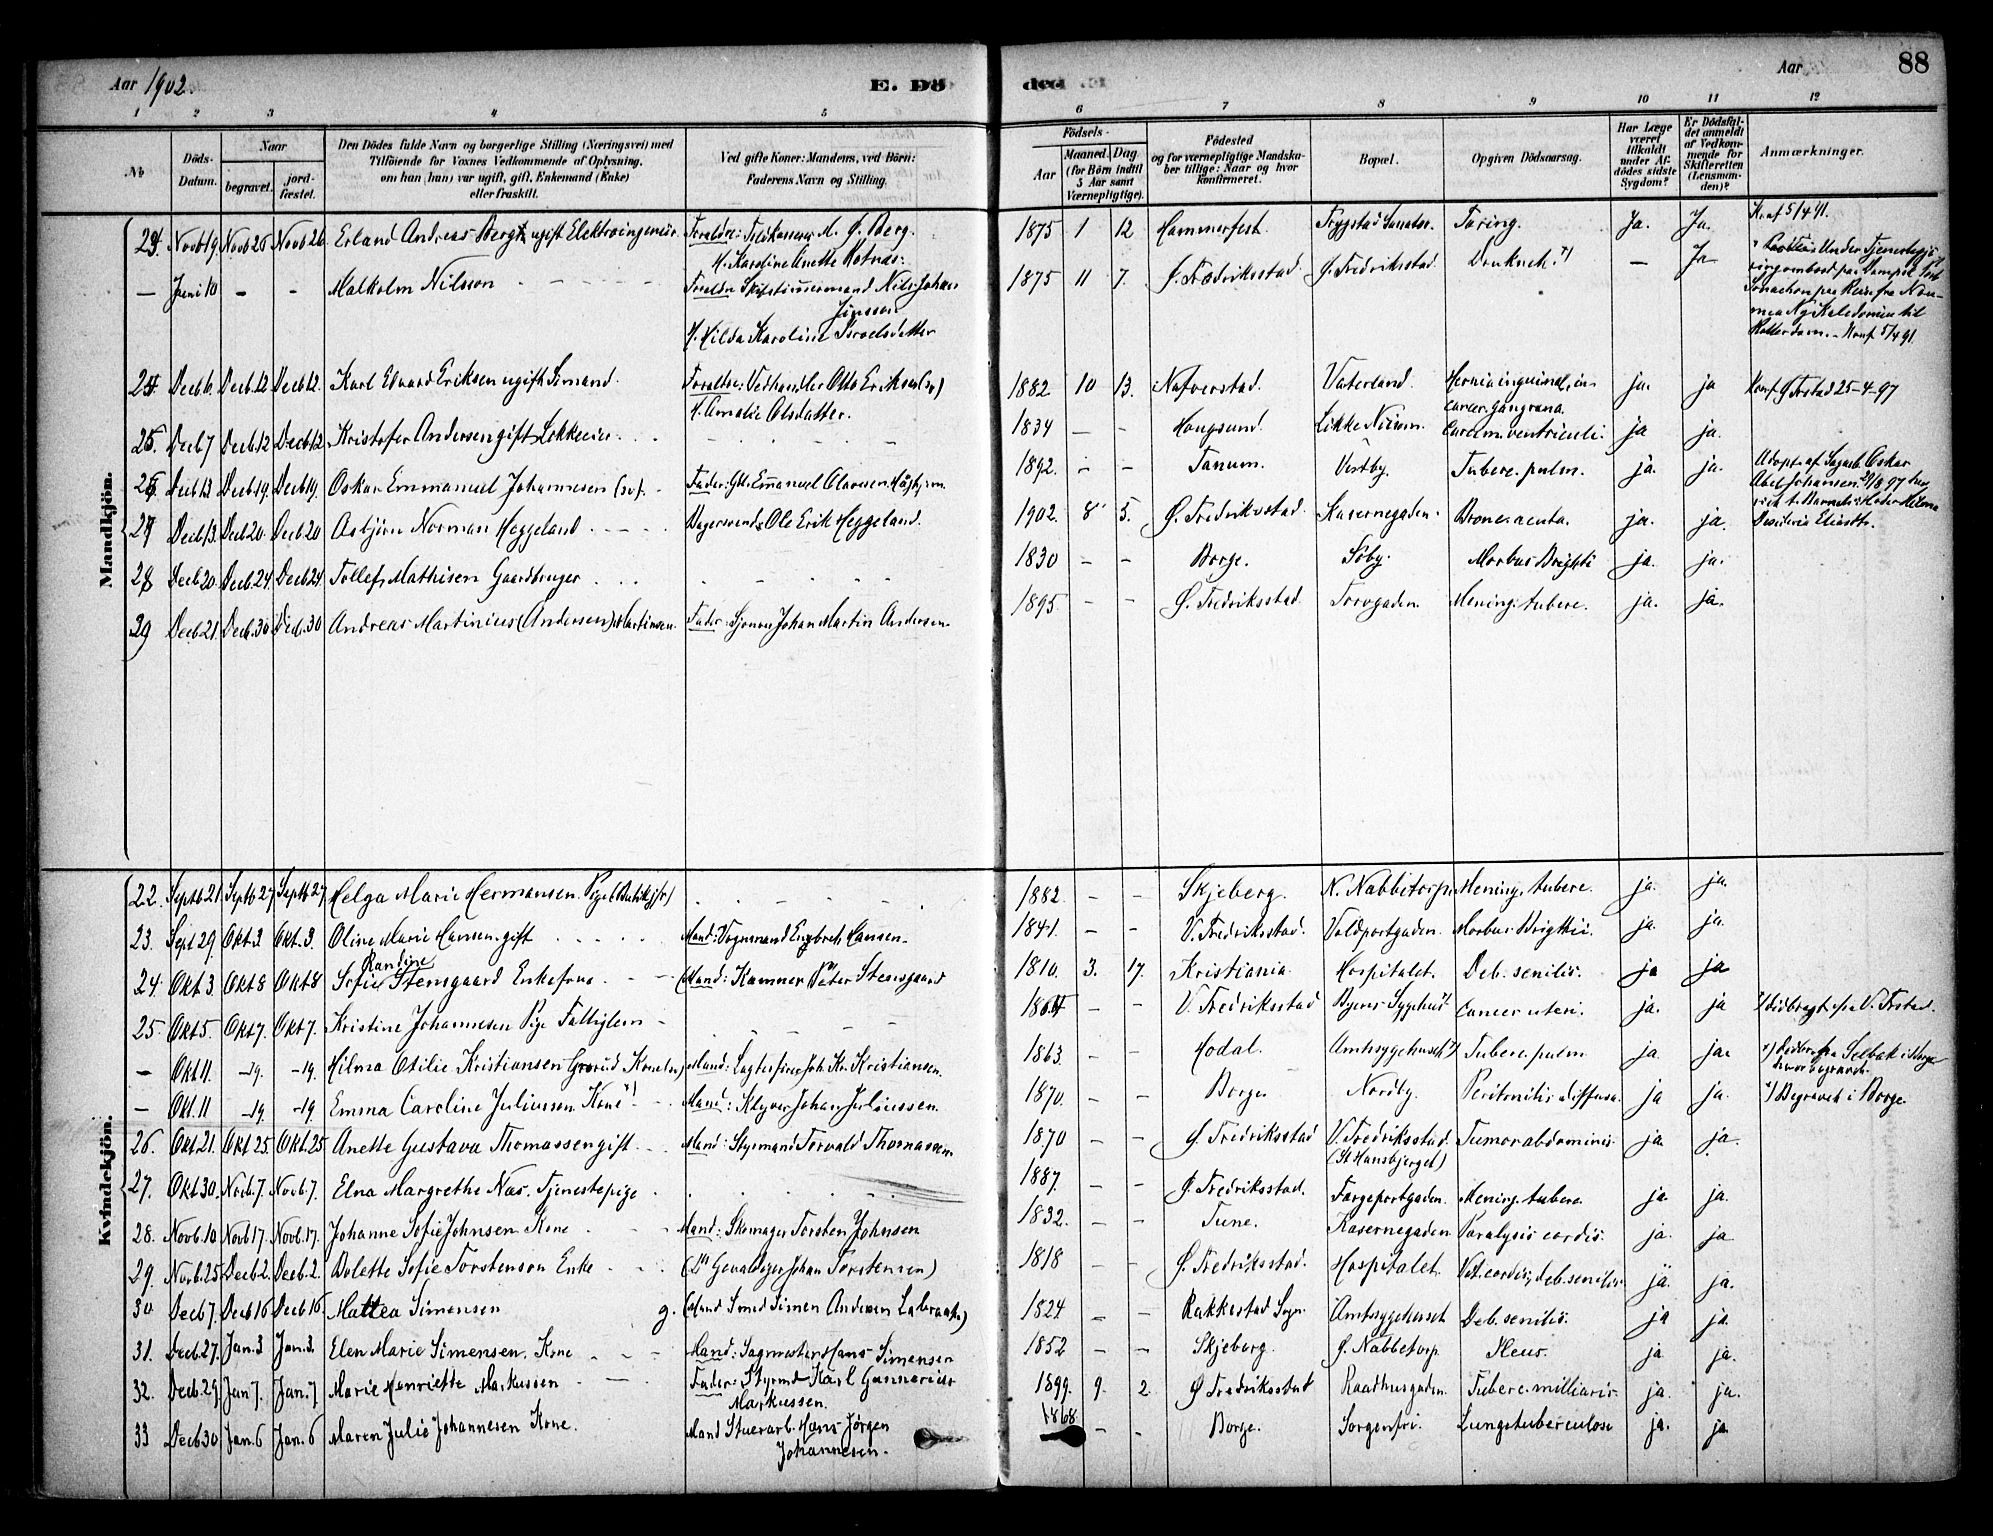 Aar 1902.
E. Dö
ded
Aar
88
1 2 3 4 5 6 7 8 9 10 11 12
No
Döds-Datum.
Naar
begravet.
jord-fæstet.
Den Dödes fulde Navn og borgerlige Stilling (Næringsvei) med
Tilföiende for Voxnes Vedkommende af Oplysning,
om han (hun) var ugift, gift, Enkemand (Enke)
eller fraskilt.
Ved gifte Koner: Mandens, ved Börn:
Faderens Navn og Stilling.
Födsels-
Aar
Maaned. Dag
(for Börn indtil
5 Aar samt
Værnepligtige).
Födested
og for værnepligtige Mandska-
ber tillige: Naar og hvor
konfirmeret.
Bopæl.
Opgiven Dödsaarsag.
Har Læge
været
tilkaldt
under Af-
dödes sidste
Sygdom?
Er Dödsfal-
det anmeldt
af Vedkom-
mende for
Skifteretten
(Lensman-
den)?
Anmærkninger.
Mandkjön.
Novb 19. Novb 26 Novb 26 Erland Andreas Berg ugift Elektroingeniör. Forældre: Toldkasserer M. Ø. Berg. 1875 1 12 Hammerfest. Tæring. Ja. Ja. Konf 5/4 91.
H. Karoline Anette
— Juni 10 - - Malkolm Nilsson Forældre Skibstimmermand Nils Johan 1875 11 7. Ø. Fredriksstad. Ø. Fredriksstad. Druknet. *) — Ja
Jinssen
H. Hilda Karoline Israelsdatter
Under Tjenestegjö-
ring ombord paa Dampsk.
paa Reise fra Nou-
mea Ny Kaledonien til
Rotterdam. - Konf 5/4 91.
24 Decb 6. Decb. 12 Decb 12. Karl Edvard Eriksen ugift Sömand. Forældre: Vedhandler Otto Eriksen 1882 10 13. Vaterland. Hernia inguinal. in-
H. Amalie Olsdatter. carcer. Gangræna. ja. ja Konf. Ø. Frstad 25-4-97
25. Decb 7 Decb. 12 Decb 12 Kristofer Andersen gift Løkkeeier. 1834 — — Løkke ventriculi. ja ja.
26 Decb 13 Decb. 19. Decb 19. Oskar Emmanuel Johannesen Fader: Emmanuel 1892. - — Tanum. Vestby. Tuberc. pulm. ja. ja. Adopt. af Sagarb. Oskar
Abel Johansen
27 Decb 13. Decb 20. Decb 20 Asbjörn Norman Heggeland Ole Erik Heggeland. 1902. 8 5. Ø. Fredriksstad. Kasernegaden. Bronc. acuta. ja. ja.
28 Decb. 20. Decb. 24. Decb 24 Tollef Mathisen Gaardbruger 1830 — — Borge. Söby. Morbus Brighti ja. ja.
29 Decb. 21. Decb. 30 Decb. 30 Andreas Martinius (Andersen) Martinsen. Fader: Sjömd Johan Martin Andersen. 1895. — — Ø. Fredriksstad Torvgaden. Mening. tuberc. ja. ja.
Kvindekjön.
22. Septb 21. Septb 27 Septb 27 Helga Marie Hermansen Pige 1882. - - Skjeberg. N. Nabbetorp. Mening. tuberc. ja. ja.
23. Sept 29. Okt. 3 Okt. 3. Oline Marie Hansen. gift Mand: Vognmand Engebret Hansen. 1841. — — V. Fredriksstad. Voldportgaden. Morbus Brigthii. ja. ja.
Randine
24. Okt 3. Okt 8 Okt 8 Sofie Stensgaard Enkefrue (Mand: Kammer Peter Stensgaard 1810. 3. 17. Kristiania. Hospitalet. Deb. senilis. ja ja
25. Okt 5. Okt 7. Okt 7. Kristine Johannesen Pige Fattiglem V. Fredriksstad Byens Sygehus Cancer uteri. ja. ja
— Okt 11. —19. —19. Hilma Otilie Kristiansen Kone Mand: Kristiansen. 1863. Hodal. Amtssygehuset Tuberc. pulm ja ja. Selbak
— Okt. 11 —19. —19 Emma Caroline Juliussen Kone Mand: Johan Juliussen. 1870. - — Borge. Nordby. Peritonitis diffusa. ja ja. *) Begravet i Borge
26. Okt 21. Okt 25. Okt. 25 Anette Gustava Thomassen gift Mand: Styrmand Torvald Thomassen 1870 — — Ø. Fredriksstad V. Fredriksstad Tumor abdominis ja ja.
(St Hansbjerget)
27. Okt 30. Novb. 7. Novb. 7. Elna Margrethe Næs. Tjenestepige 1887. — — Ø. Fredriksstad. Færgeportgaden. Mening. tuberc. ja ja.
28. Novb. 10 Novb 17. Novb. 17. Johanne Sofie Johnsen Kone Mand: Skomager Torsten Johnsen 1832. - — Tune. Kasernegaden Paralysis cordis. ja. ja
29. Novb. 25 Decb 2. Decb. 2. Bolette Sofie Torstenson Enke Johan Torstensen) 1818 — — Ø. Fredriksstad. Hospitalet Vit. cordis, deb. senilis. ja. ja.
30 Decb 7. Decb 16 Decb 16. Mattea Simensen g. (Mand Smed Simen Andersen 1824 — — Rakkestad Sogn. Amtssygehuset Deb. senilis. ja ja.
31. Decb. 27. Jan. 3 Jan. 3. Elen Marie Simensen. Kone Mand: Sagmester Hans Simensen 1852 — — Skjeberg. Ø. Nabbetorp Ileus. ja ja.
32. Decb. 29. Jan 7. Jan. 7. Marie Henriette Markussen Fader: Styrmd Karl Gunnarius
Markussen. 1899. 9. 2. Ø Fredriksstad Raadhusgaden. Tuberc. milliaris. ja. ja.
33 Decb 30 Jan. 6 Jan. 6 Maren Julie Johannesen Kone. Mand Stuerarb. Hans Jörgen
Johannesen. 1868. — - Borge. Sorgenfri. Lungetuberculose ja. ja.